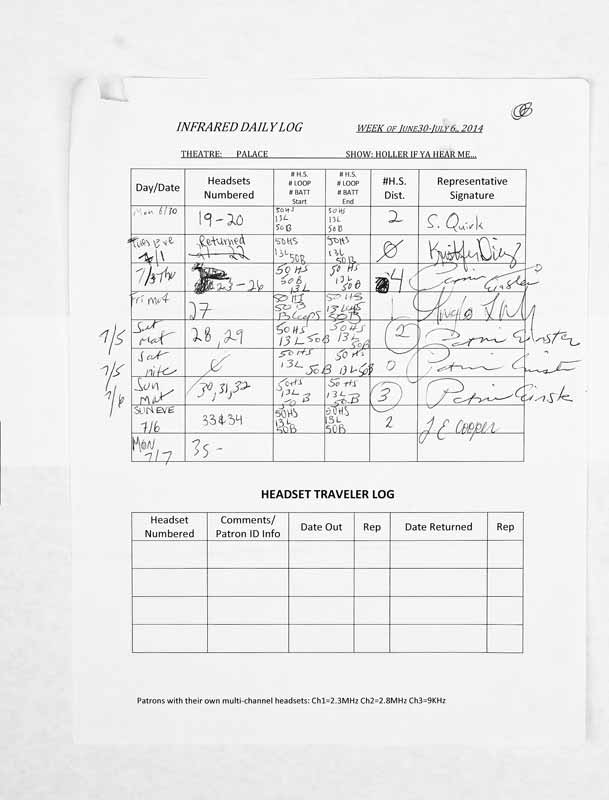 INFRARED DAILY LOG
WEEK OF JUNE30-JULY 6., 2014
THEATRE: PALACE SHOW: HOLLER IF YA HEAR ME...
Day/Date
Headsets Numbered
# H.S. # LOOP # BATT Start
# H.S. # LOOP # BATT End
#H.S. Dist.
Representative Signature
Mon 6/30 19-20 50HS 13L 50B 50HS 13L 50B 2 S. Quirk
Tues Eve 7/1 Returned 21 22 50HS 13L 50B 50HS 13L 50B 0
7/3 Thu 23-26 50HS 50B 13L 50HS 50B 13L 4
Fri mat 27 50HS 50B 50HS 50B 1
7/5 Sat mat 28, 29 50HS 13L 50B 50HS 13L 50B 2
7/5 Sat nite 0 50HS 13L 50B 50HS 13L 50B 0
7/6 Sun mat 30, 31, 32 50HS 13L 50B 50HS 13L 50B 3
SUN EVE 7/6 33&34 50HS 13L 50B 50HS 13L 50B 2 J E Cooper
MON 7/7 35-
HEADSET TRAVELER LOG
Headset Numbered
Comments/ Patron ID Info
Date Out
Rep
Date Returned
Rep
Patrons with their own multi-channel headsets: Ch1=2.3MHz Ch2=2.8MHz Ch3=9KHz